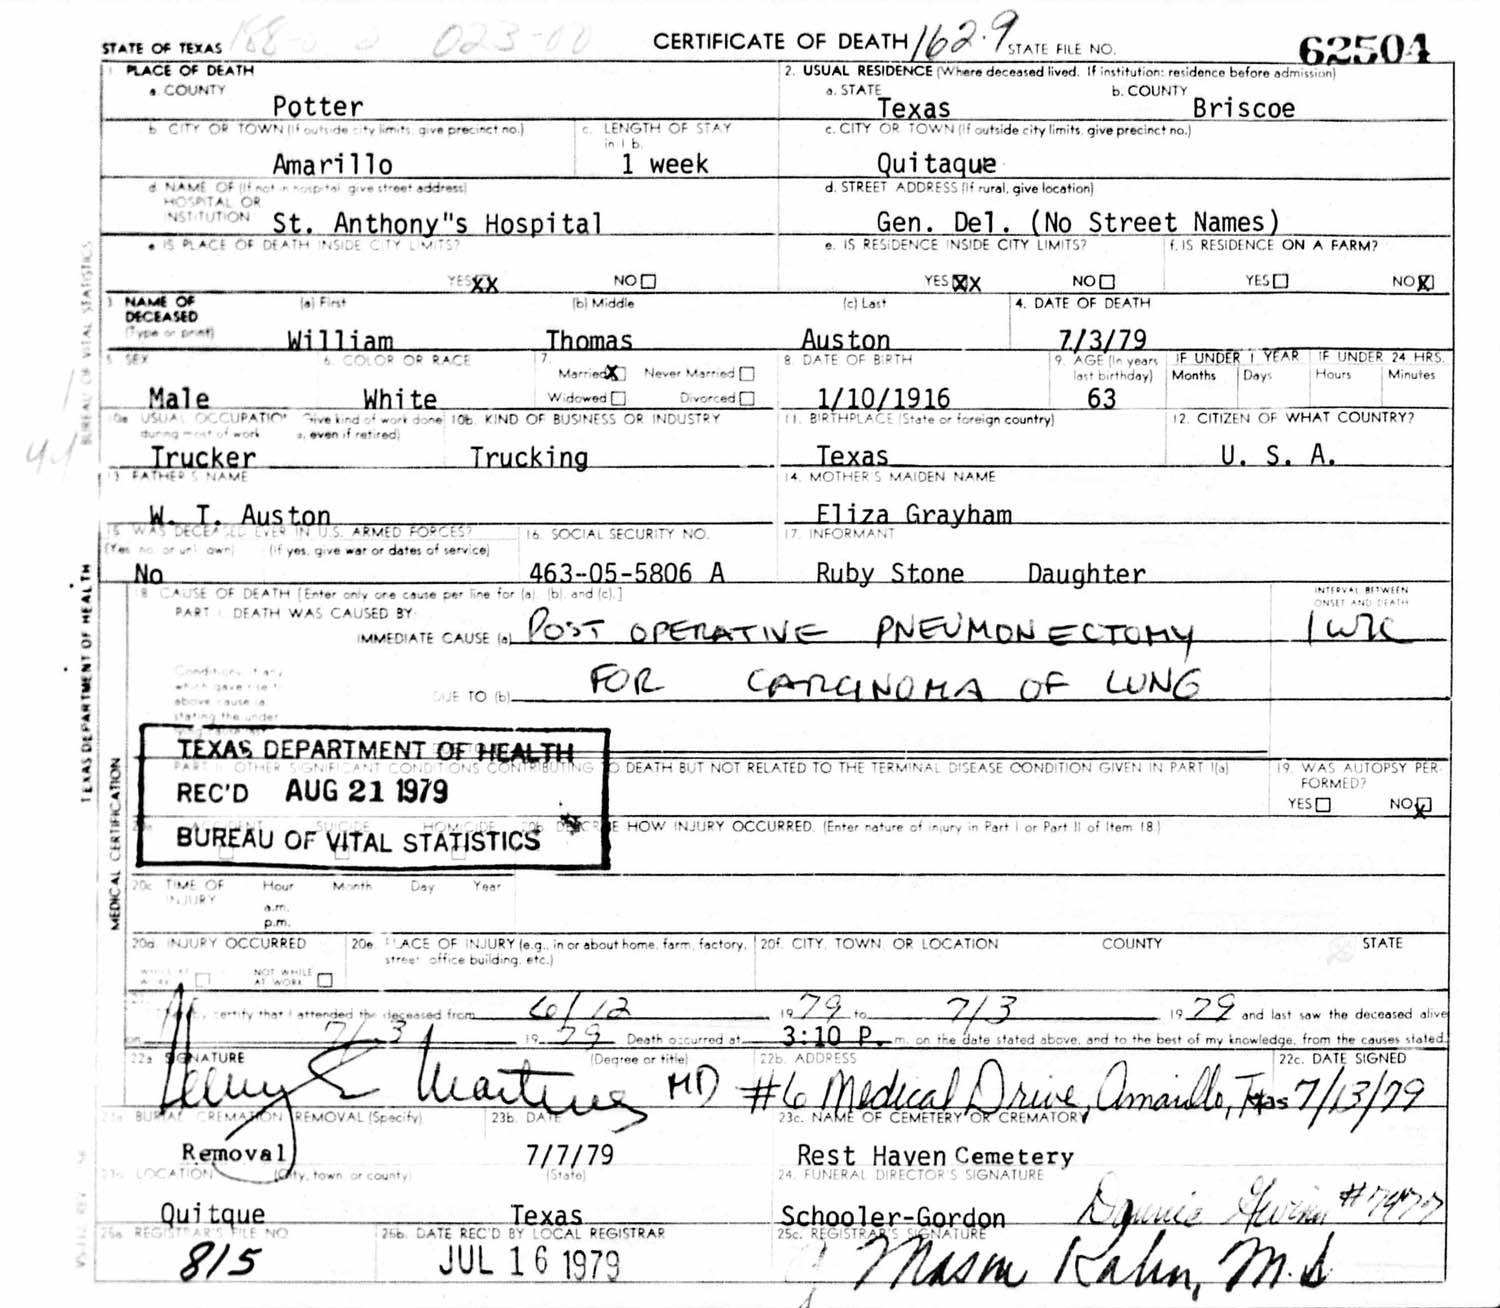 STATE OF TEXAS CERTIFICATE OF DEATH 162.9 STATE FILE NO. 62504
1 PLACE OF DEATH
a. COUNTY
Potter
2. USUAL RESIDENCE (Where deceased lived. If institution: residence before admission)
a. STATE b. COUNTY
Texas Briscoe
b CITY OR TOWN (If outside city limits, give precinct no.) c. LENGTH OF STAY in 1 b.
Amarillo 1 week
c. CITY OR TOWN (If outside city limits, give precinct no.)
Quitaque
d NAME OF (If not in hospital, give street address)
HOSPITAL OR
INSTITUTION St. Anthony"s Hospital
d. STREET ADDRESS (If rural, give location)
Gen. Del. (No Street Names)
e IS PLACE OF DEATH INSIDE CITY LIMITS?
YES XX NO
e. IS RESIDENCE INSIDE CITY LIMITS? f. IS RESIDENCE ON A FARM?
YES XX NO YES NO X
3 NAME OF DECEASED (Type or print) (a) First (b) Middle (c) Last 4. DATE OF DEATH
William Thomas Auston 7/3/79
5 SEX 6. COLOR OR RACE 7. Married X Never Married Widowed Divorced 8. DATE OF BIRTH 9. AGE (In years last birthday) IF UNDER 1 YEAR Months Days IF UNDER 24 HRS. Hours Minutes
Male White 1/10/1916 63
10a USUAL OCCUPATION Give kind of work done during most of work even if retired) 10b. KIND OF BUSINESS OR INDUSTRY 11. BIRTHPLACE (State or foreign country) 12. CITIZEN OF WHAT COUNTRY?
Trucker Trucking Texas U. S. A.
13 FATHER'S NAME 14. MOTHER'S MAIDEN NAME
W. T. Auston Eliza Grayham
15 WAS DECEASED EVER IN U.S. ARMED FORCES? 16. SOCIAL SECURITY NO. 17. INFORMANT
(If yes, give war or dates of service)
No 463-05-5806 A Ruby Stone Daughter
18 CAUSE OF DEATH [Enter only one cause per line for (a) (b), and (c).] INTERVAL BETWEEN ONSET AND DEATH
PART I DEATH WAS CAUSED BY:
IMMEDIATE CAUSE (a) POST OPERATIVE PNEUMONECTOMY 1 WK
Conditions, if any
which gave rise t
above cause (a)
stating the under
DUE TO (b) FOR CARCINOMA OF LUNG
TEXAS DEPARTMENT OF HEALTH
REC'D AUG 21 1979
BUREAU OF VITAL STATISTICS
PART II OTHER SIGNIFICANT CONDITIONS CONTRIBUTING TO DEATH BUT NOT RELATED TO THE TERMINAL DISEASE CONDITION GIVEN IN PART I(a) 19. WAS AUTOPSY PERFORMED?
YES NO X
ACCIDENT SUICIDE HOMICIDE 20b DESCRIBE HOW INJURY OCCURRED. (Enter nature of injury in Part I or Part II of Item 18.)
20c TIME OF INJURY Hour Month Day Year
a.m.
p.m.
20d. INJURY OCCURRED 20e. PLACE OF INJURY (e.g., in or about home, farm, factory, street office building, etc.) 20f. CITY, TOWN, OR LOCATION COUNTY STATE
WHILE AT WORK NOT WHILE AT WORK
certify that I attended the deceased from 6/12 1979 to 7/3 1979 and last saw the deceased alive
on 7/3 1979 Death occurred at 3:10 P. m. on the date stated above, and to the best of my knowledge, from the causes stated.
22a SIGNATURE (Degree or title) 22b. ADDRESS 22c. DATE SIGNED
MD #6 Medical Drive, Amarillo, Texas 7/13/79
23a BURIAL CREMATION REMOVAL (Specify) 23b. DATE 23c. NAME OF CEMETERY OR CREMATORY
Removal 7/7/79 Rest Haven Cemetery
LOCATION (City, town, or county) (State) 24. FUNERAL DIRECTOR'S SIGNATURE
Quitque Texas Schooler-Gordon #7977
25a REGISTRAR'S FILE NO 25b. DATE REC'D BY LOCAL REGISTRAR 25c. REGISTRAR'S SIGNATURE
815 JUL 16 1979 Mason Kahn, M.D
TEXAS DEPARTMENT OF HEALTH
BUREAU OF VITAL STATISTICS
MEDICAL CERTIFICATION